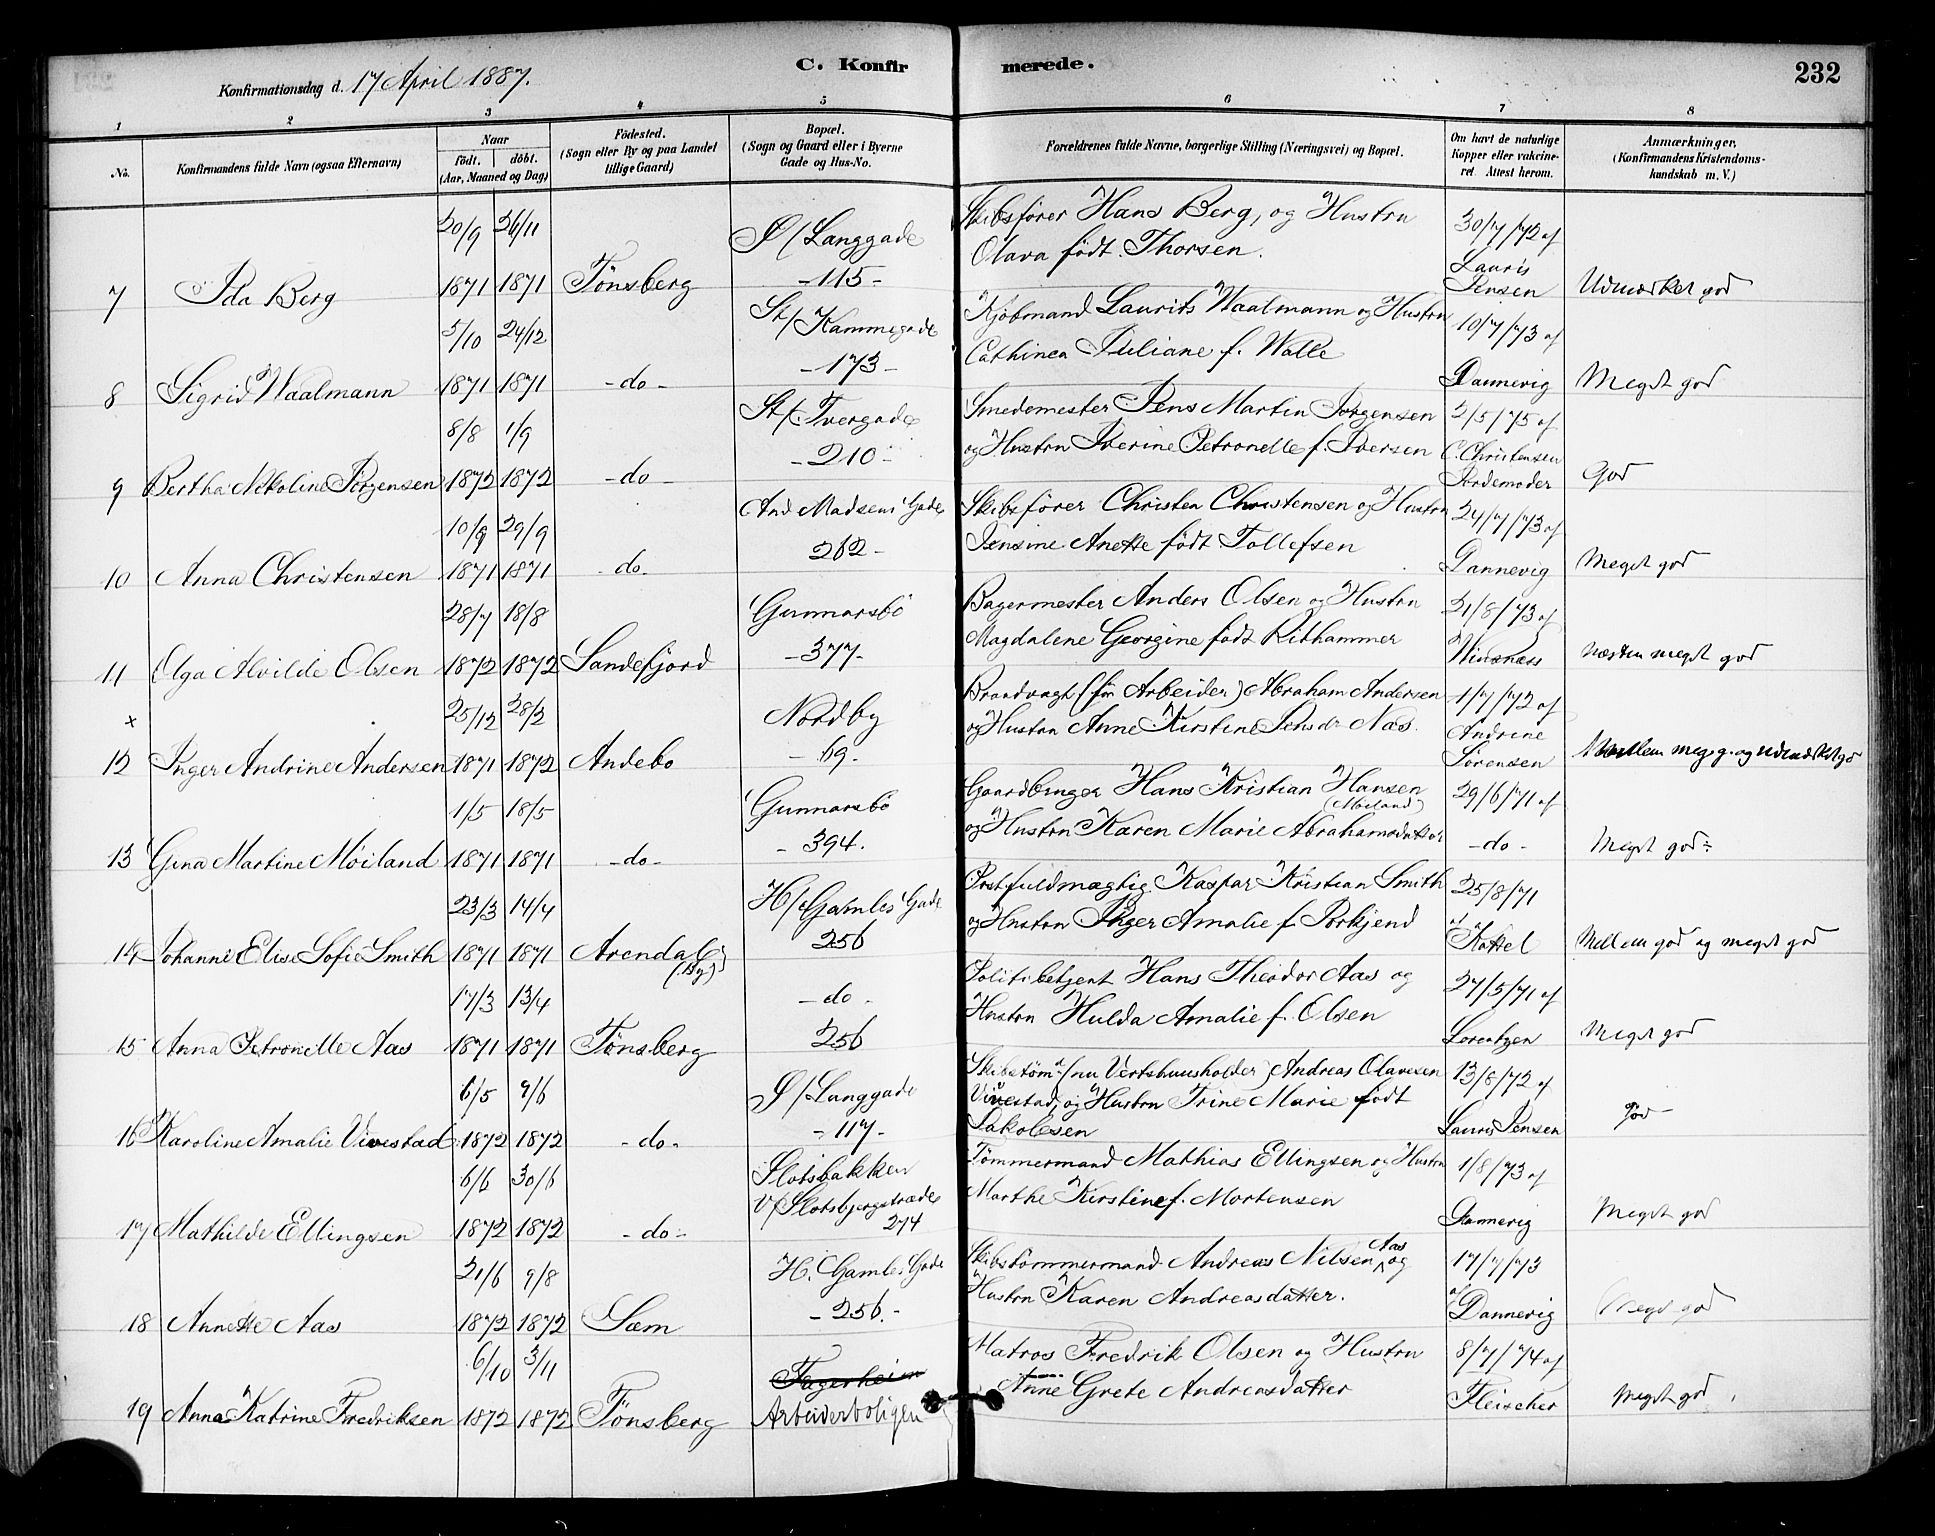 C. Konfirmerede.
232
Konfirmationsdag d. 17 April 1887.
1 2 3 4 5 6 7 8
No. Konfirmandens fulde Navn (ogsaa Efternavn) Naar født. døbt. (Aar, Maaned og Dag) Fødested. (Sogn eller By og paa Landet tillige Gaard) Bopæl. (Sogn og Gaard eller i Byerne Gade og Hus-No. Forældrenes fulde Navne, borgerlige Stilling (Næringsvei) og Bopæl. Om havt de naturlige Kopper eller vakcineret. Attest herom. Anmærkninger. (Konfirmandens Kristendomskundskab m. V.)
20/9 26/11 Ø/Langgade Skibsfører Hans Berg, og Hustru 30/7/72 af
Olava født Thorsen. Lauris
7 Ida Berg 1871 1871 Tønsberg -115- Jensen Udmærket god
5/10 24/12 St/Kammegade Kjøbmand Laurits Waalmann og Hustru 10/7/73 af
-173- Cathinca Juliane f. Walle
8 Sigrid Waalmann 1871 1871 -do- Dannevig Meget god
8/8 1/9 St/Tvergade Smedemester Jens Martin Jørgensen 2/5/75 af
-210- og Hustru Iverine Petronelle f. Iversen C. Christensen
9 Bertha Nikoline Jørgensen 1872 1872 -do- Jordemoder God
10/9 29/9 And. Madsens Gade Skibsfører Christen Christensen og Hustru 24/7/73 af
262- Jensine Anette født Tollefsen
10 Anna Christensen 1871 1871 -do- Dannevig Meget god
28/7 18/8 Gunnarsbø Bagermester Anders Olsen og Hustru 21/8/73 af
Magdalene Georgine født Rithammer
11 Olga Alvilde Olsen 1872 1872 Sandefjord -377- Winsnæss næsten meget god
x 25/12 28/2 Nordby Brandvagt (før Arbeider) Abraham Andersen 1/7/72 af
-69- og Hustru Anne Kirstine Jensdr Næs. Andrine
12 Inger Andrine Andersen 1871 1872 Andebo Sørensen Mellem meg. g. og udmærket god
1/5 18/5 Gunnarsbø Gaardbruger Hans Kristian Hansen (Møiland) 29/6/71 af
-394. og Hustru Karen Marie Abrahamsdatter
13 Gina Martine Møiland 1871 1871 -do- -do- Meget god÷
23/3 14/4 H/Gamles Gade Postfuldmægtig Kaspar Kristian Smith 25/8/71
256 og Hustru Inger Amalie f. Porkjend af
14 Johanne Elise Sofie Smith 1871 1871 Arendal (By) Kattel Mellem god og meget god
17/3 13/4 -do- Politibetjent Hans Theodor Aas og 27/5/71 af
256 Hustru Hulda Amalie f. Olsen
15 Anna Petronelle Aas 1871 1871 Tønsberg Lorentzen Meget god
6/5 9/6 Ø/Langgade Skibstøm. (nu Vertshuusholder) Andreas Olavesen 13/8/72 af
Vivestad, og Hustru Trine Marie født
16 Karoline Amalie Vivestad 1872 1872 -do- -117- Jakobsen Lauris Jensen God-
6/6 30/6 Slotsbakken Tømmermand Mathias Ellingsen og Hustru 1/8/73 af
V/Slotsbjergstræde Marthe Kirstine f. Mortensen
17 Mathilde Ellingsen 1872 1872 -do- 274 Dannevig Meget god
21/6 9/8 H. Gamles Gade Skibstømmermand Andreas Nilsen Aas og 17/7/73
-256.- Hustru Karen Andreasdatter. af
18 Annette Aas 1872 1872 Sem Dannevig Meget god
6/10 3/11 Fagerheim Matros Fredrik Olsen og Hustru 8/7/74 af
Anne Grete Andreasdatter
19 Anna Katrine Fredriksen 1872 1872 Tønsberg Arbeiderboligen Fleischer Meget god.